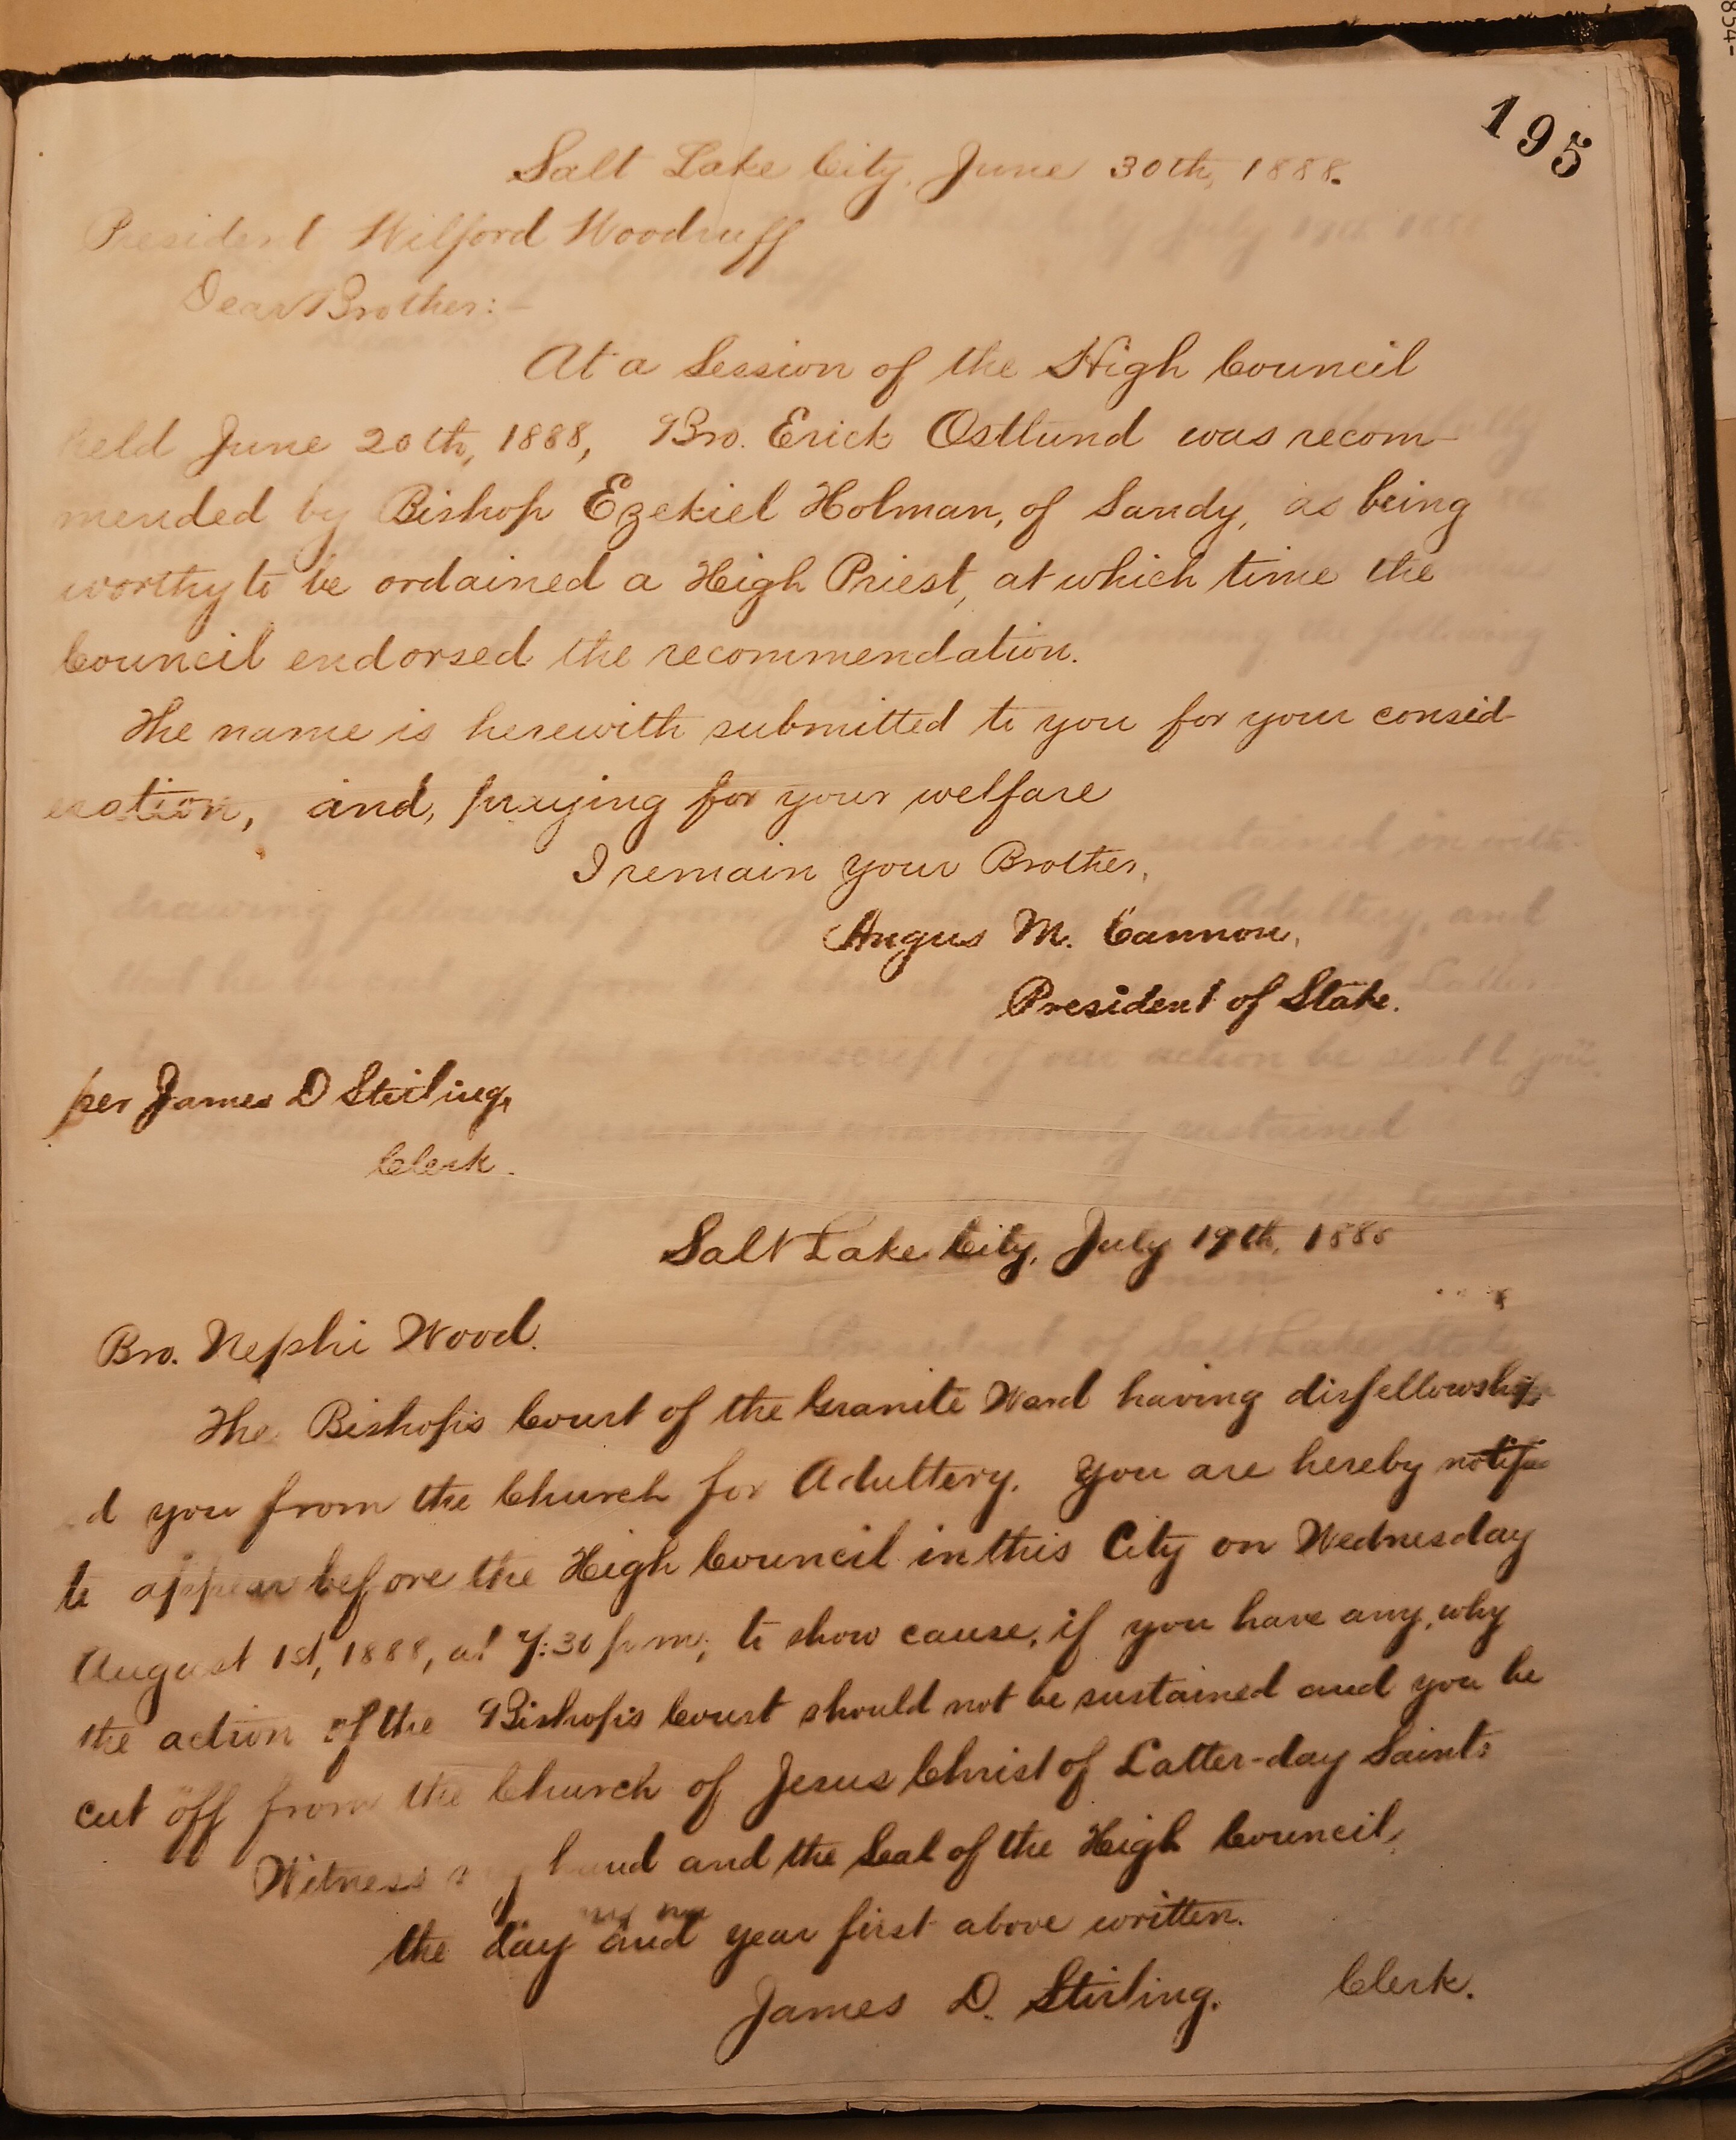 195
Salt Lake City, June 30th, 1888.
President Wilford Woodruff
Dear Brother:-
At a Session of the High Council
held June 20th, 1888, Bro. Erick Ostlund was recom-
mended by Bishop Ezekiel Holman, of Sandy, as being
worthy to be ordained a High Priest, at which time the
Council endorsed the recommendation.
The name is herewith submitted to you for your consid-
eration, and, praying for your welfare
I remain your Brother,
Angus M. Cannon,
President of Stake.
per James D Stirling,
Clerk.
Salt Lake City, July 19th, 1888
Bro. Nephi Wood.
The Bishop's Court of the Granite Ward having disfellowship
d you from the Church for Adultery. You are hereby
to appear before the High Council in this City on Wednesday
August 1st, 1888, at 7:30 p.m., to show cause, if you have any, why
the action of the Bishop's Court should not be sustained and you be
cut off from the Church of Jesus Christ of Latter-day Saints
Witness my hand and the Seal of the High Council,
the day and year first above written.
James D. Stirling. Clerk.